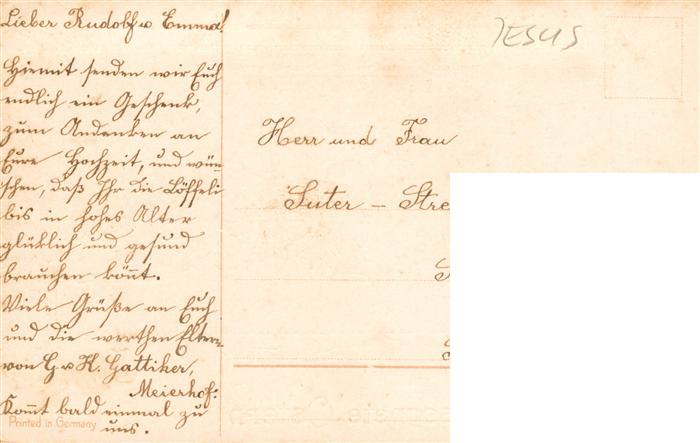 Lieber Rudolf u Emma!
Hiermit senden wir Euch
endlich ein Geschenk,
zum Andenken an
Eure Hochzeit, und wün-
schen, daß Ihr die Löffeli
bis in hohes Alter
glücklich und gesund
brauchen könnt.
Viele Grüße an Euch
und die werthen Eltern
von G. u H. Gattiker,
Meierhof.
Kommt bald einmal zu
uns.
Printed in Germany
JESUS
Herr und Frau
Suter - Stre